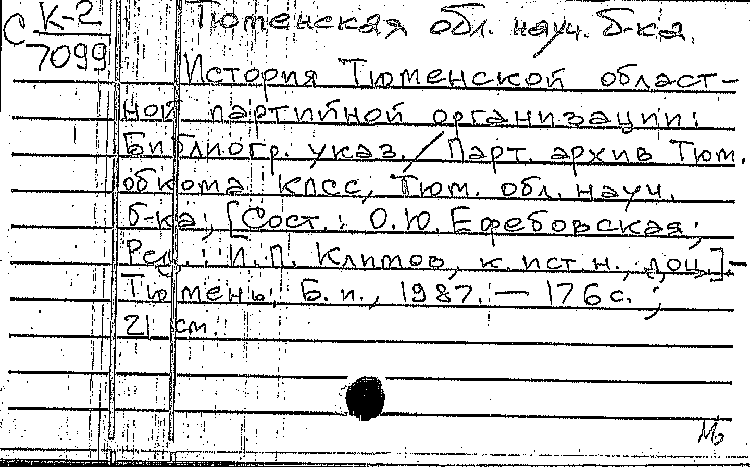 С К-2
7099
Тюменская обл. науч. б-ка.
История Тюменской област-
ной партийной организации:
Библиогр. указ. / Парт. архив Тюм.
обкома КПСС, Тюм. обл. науч.
б-ка; [Сост.: О.Ю. Ефебовская;
Ред.: И.П. Климов, к. ист. н., доц.] -
Тюмень, Б. и., 1987. — 176 с.;
21 см.